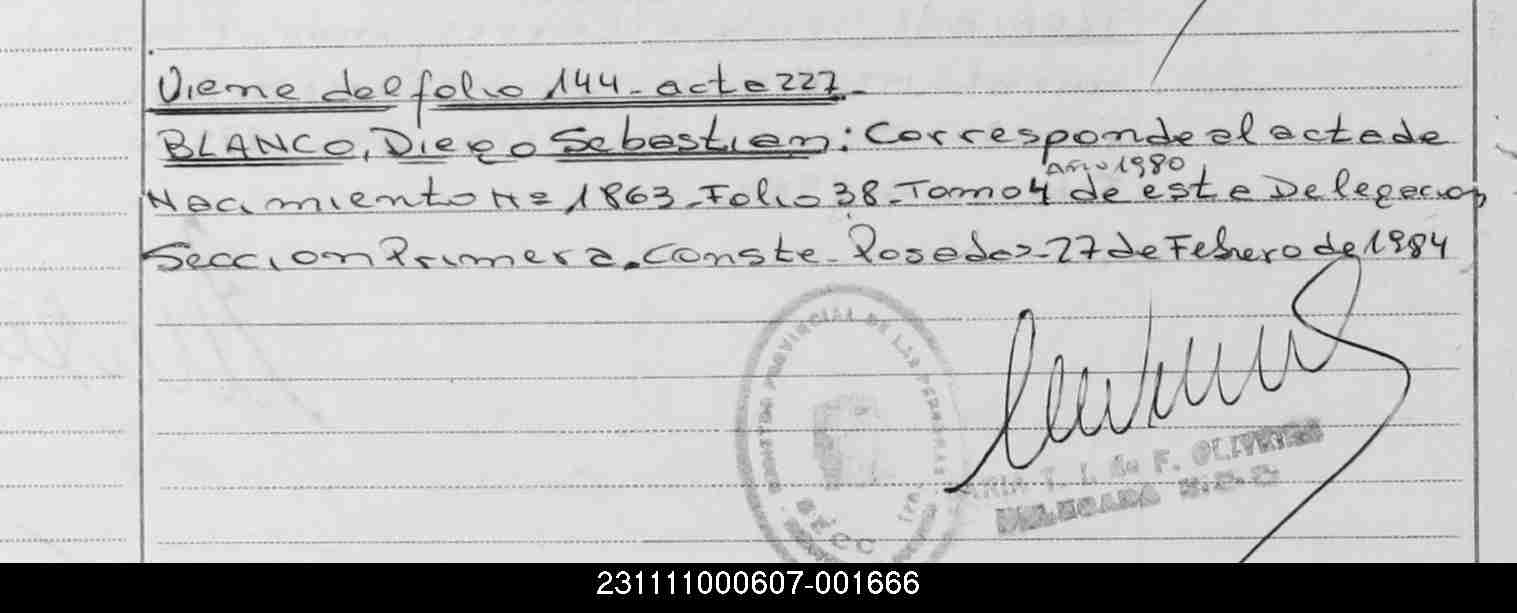 Viene del folio 144 - acta 227 -
BLANCO, Diego Sebastian: Corresponde al acta de
año 1980
Nacimiento Nº 1863 - Folio 38 - Tomo 4 de esta Delegacion
Seccion Primera. Conste - Posadas - 27 de Febrero de 1984
PROVINCIAL DE LAS PERSONAS
SECC
MARIA T. I. de F. OLIVEIRA
DELEGADA
231111000607-001666